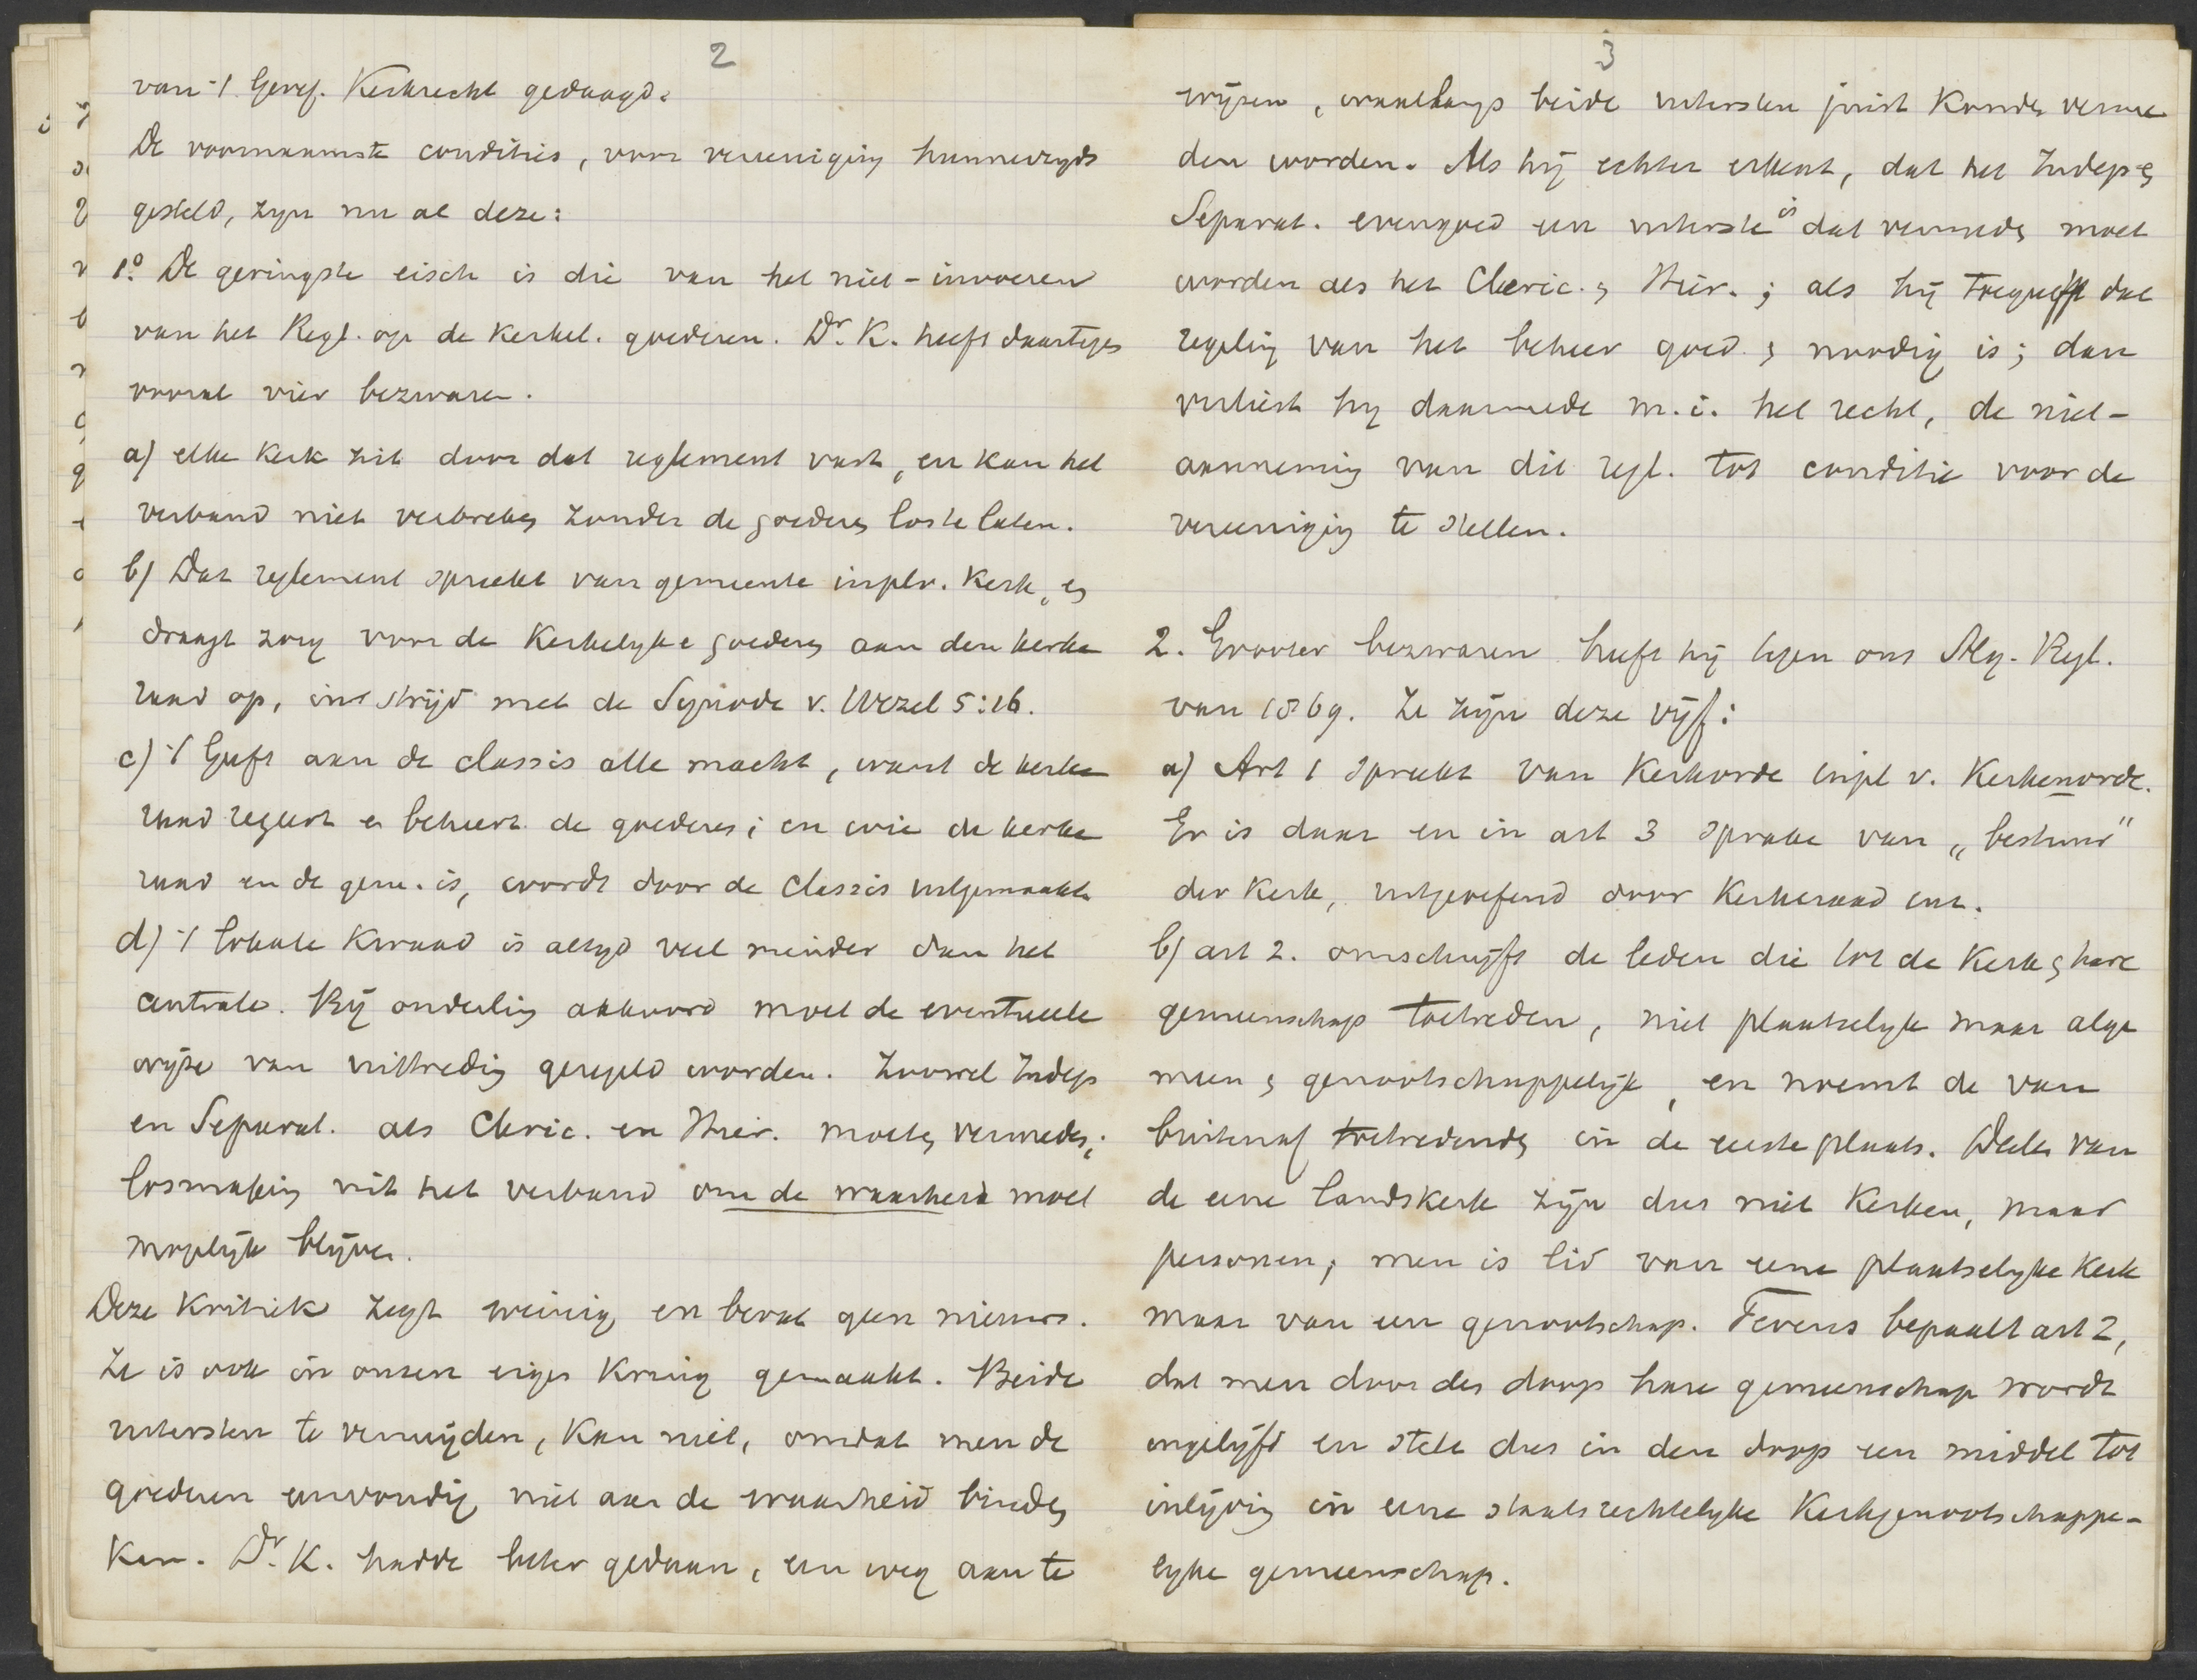 2
van 't Geref. Kerkrecht gedaagd.
De voornaamste condities, voor vereeniging hunnerzijds
gesteld, zijn nu al deze:
1.o De geringste eisch is die van het niet-invoeren
van het Regl. op de kerkel. goederen. Dr. K. heeft daartegen
vooral vier bezwaren.
a) elke kerk zit door dat reglement vast, en kan het
verband niet verbreken zonder de goederen los te laten.
b) Dat reglement spreekt van gemeente in plv. Kerk, en
draagt zorg voor de Kerkelijke goederen aan den kerke
raad op, in strijd met de Synode v. Wezel 5:16.
c) 't Geeft aan de classis alle macht, want de kerke
raad regeert en beheert de goederen; en wie de kerke
raad en de gem. is, wordt door de Classis uitgemaakt.
d) 't lokale kwaad is altijd veel minder dan het
centrale. Bij onderling akkoord moet de eventueele
wijze van uittreding geregeld worden. Zoowel Indep
en Separat. als Cleric. en Hier. moeten vermeden;
losmaking uit het verband om de waarheid moet
mogelijk blijven.
Deze kritiek zegt weinig en bevat geen nieuws.
Ze is ook in onzen eigen kring gemaakt. Beide
uitersten te vermijden, kan niet, omdat men de
goederen eenvoudig niet aan de waarheid binden
kan. Dr. K. hadde beter gedaan, een weg aan te
3
wijzen, waarlangs beide uitersten juist konden verme
den worden. Als hij echter erkent, dat het Indep. en
Separat. evengoed een uiterste is dat vermeden moet
worden als het Cleric. en Hier.; als hij toegeeft dat
regeling van het beheer goed en noodig is; dan
verliest hij daarmede m.i. het recht, de niet-
aanneming van dit regl. tot conditie voor de
vereeniging te stellen.
2. Grooter bezwaren heeft hij tegen ons Alg. Regl.
van 1869. Ze zijn deze vijf:
a) Art 1 spreekt van Kerkorde in pl v. Kerkenorde.
Er is daar en in art 3 sprake van "bestuur"
der Kerk, uitgeoefend door Kerkeraad enz.
b) art 2. omschrijft de leden die tot de Kerk en hare
gemeenschap toetreden, niet plaatselijk maar alge
meen en genootschappelijk, en noemt de van
buitenaf toetredenden in de eerste plaats. Deelen van
de eene landskerk zijn dus niet Kerken, maar
personen; men is lid van eene plaatselijke Kerk
maar van een genootschap. Tevens bepaalt art 2,
dat men door den doop hare gemeenschap wordt
ingelijfd en stelt dus in den doop een middel tot
inlijving in eene staatsrechtelijke Kerkgenootschappe-
lijke gemeenschap.